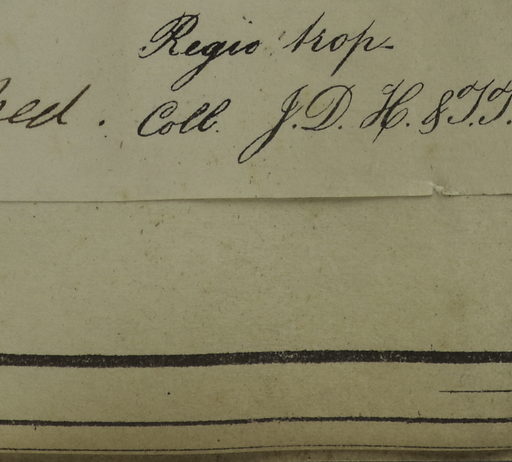 Regio trop.
Coll. J. D. H. & T. T.